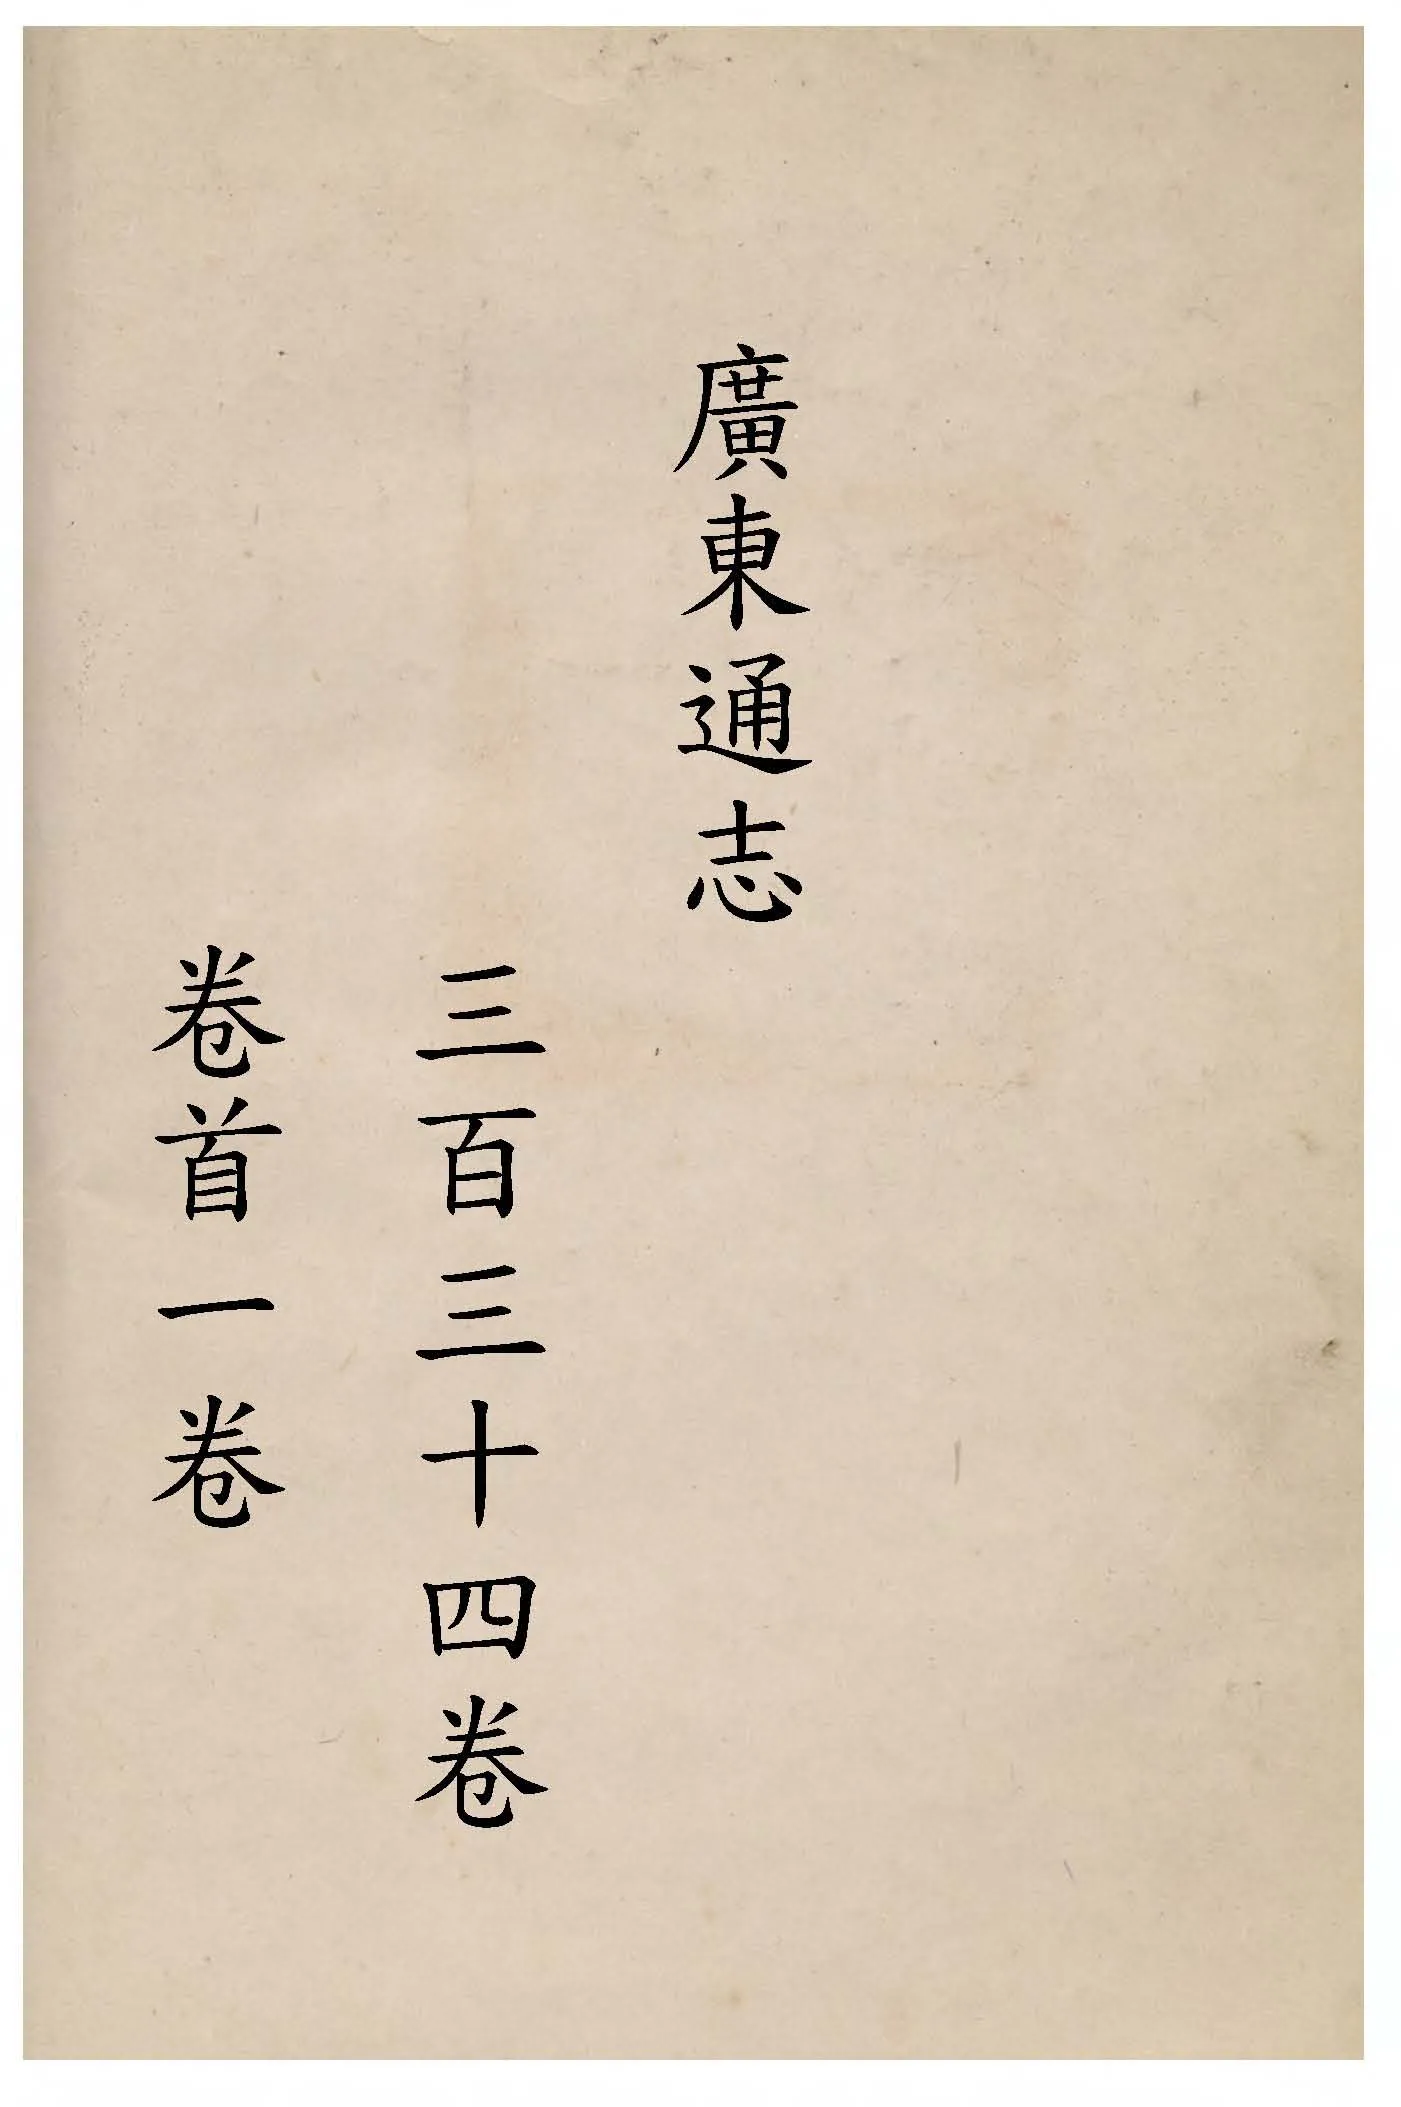 廣東通志
三百三十四卷
卷首一卷